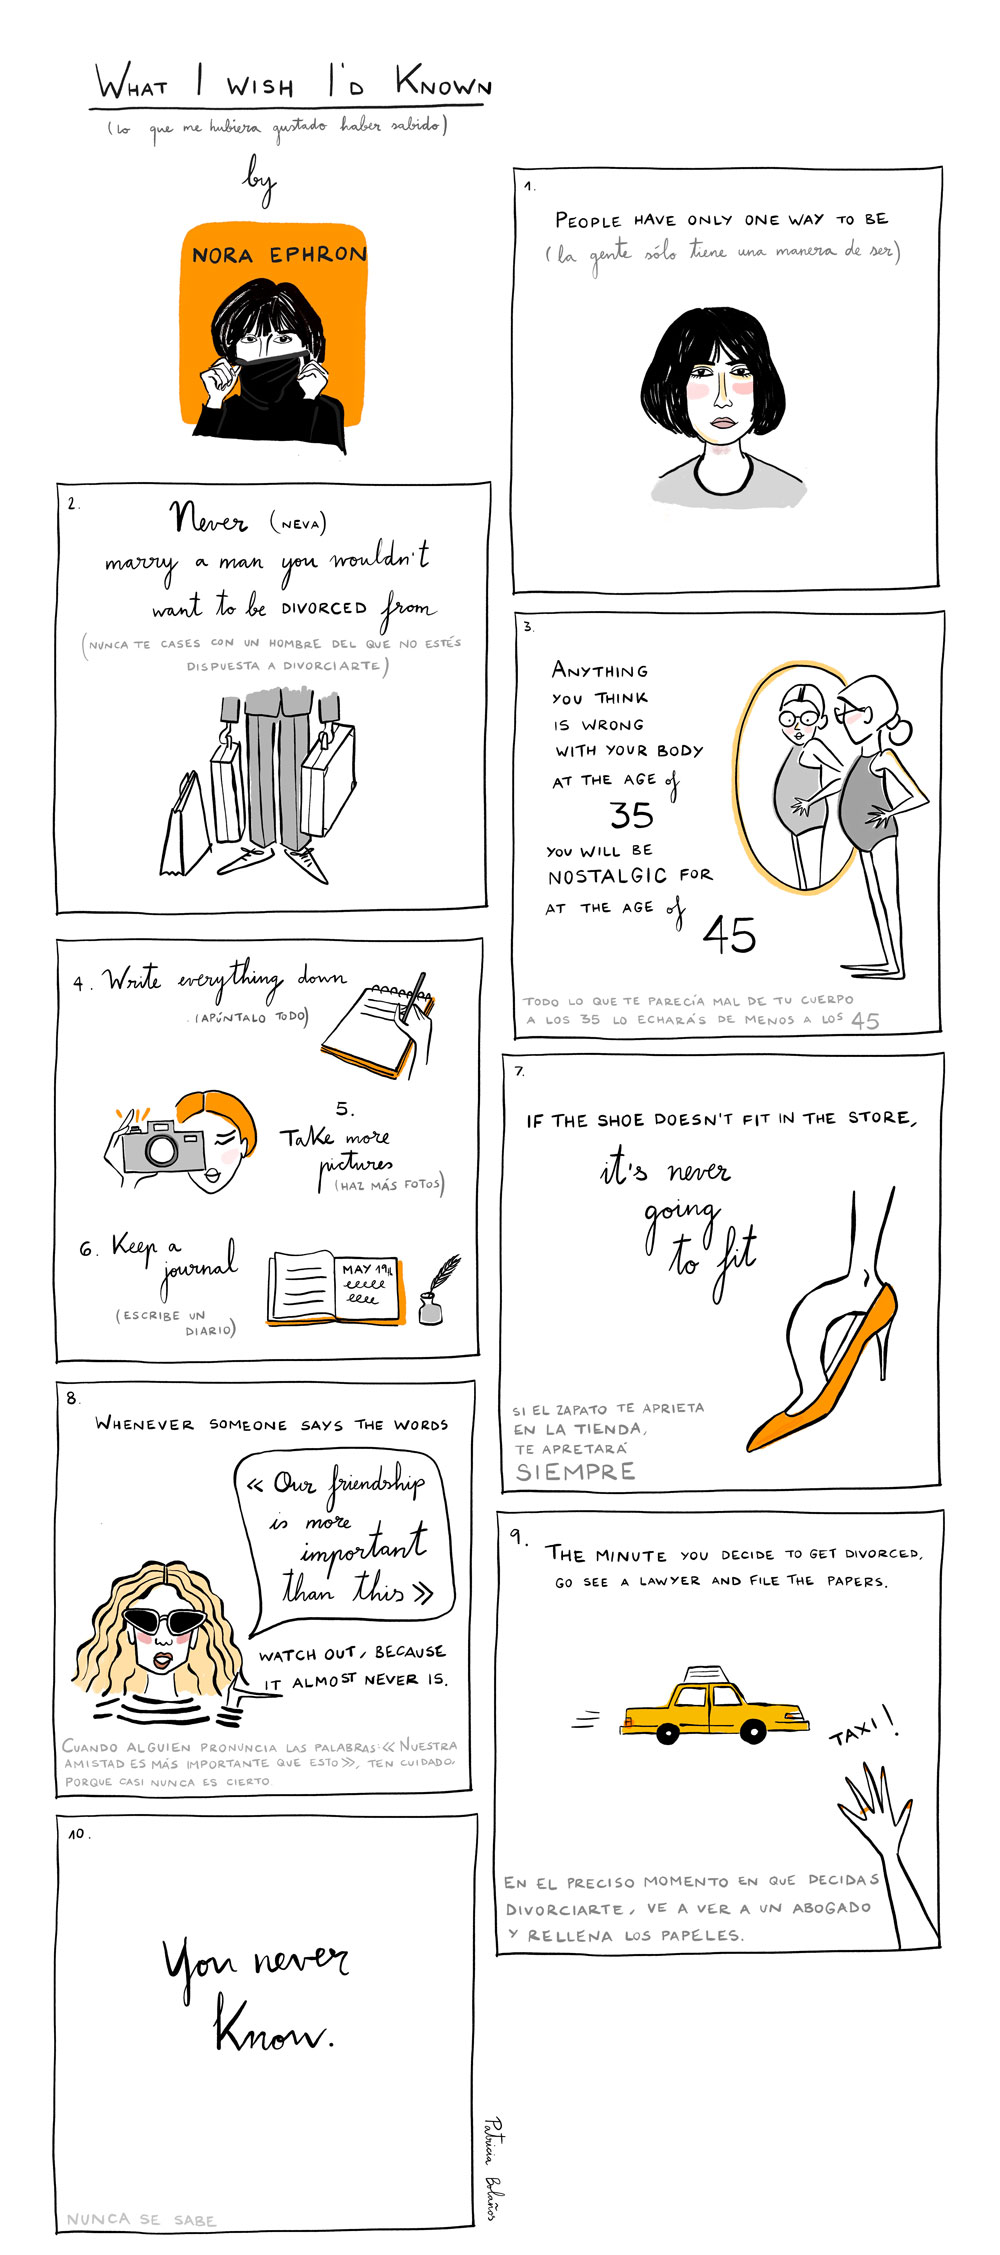 WHAT I WISH I'D KNOWN
(lo que me hubiera gustado haber sabido)
by
NORA EPHRON
1.
PEOPLE HAVE ONLY ONE WAY TO BE
(la gente sólo tiene una manera de ser)
2.
Never (NEVA)
marry a man you wouldn't
want to be DIVORCED from
(NUNCA TE CASES CON UN HOMBRE DEL QUE NO ESTÉS
DISPUESTA A DIVORCIARTE)
3.
ANYTHING
YOU THINK
IS WRONG
WITH YOUR BODY
AT THE AGE of
35
YOU WILL BE
NOSTALGIC FOR
AT THE AGE of
45
TODO LO QUE TE PARECÍA MAL DE TU CUERPO
A LOS 35 LO ECHARÁS DE MENOS A LOS 45
4. Write everything down
(APÚNTALO TODO)
5.
Take more
pictures
(HAZ MÁS FOTOS)
6. Keep a
journal
(ESCRIBE UN
DIARIO)
MAY 19th
7.
IF THE SHOE DOESN'T FIT IN THE STORE,
it's never
going
to fit
SI EL ZAPATO TE APRIETA
EN LA TIENDA,
TE APRETARÁ
SIEMPRE
8.
WHENEVER SOMEONE SAYS THE WORDS
« Our friendship
is more
important
than this »
WATCH OUT, BECAUSE
IT ALMOST NEVER IS.
CUANDO ALGUIEN PRONUNCIA LAS PALABRAS: « NUESTRA
AMISTAD ES MÁS IMPORTANTE QUE ESTO », TEN CUIDADO,
PORQUE CASI NUNCA ES CIERTO.
9.
THE MINUTE YOU DECIDE TO GET DIVORCED,
GO SEE A LAWYER AND FILE THE PAPERS.
TAXI!
EN EL PRECISO MOMENTO EN QUE DECIDAS
DIVORCIARTE, VE A VER A UN ABOGADO
Y RELLENA LOS PAPELES.
10.
You never
know.
NUNCA SE SABE
Patricia Bolaños